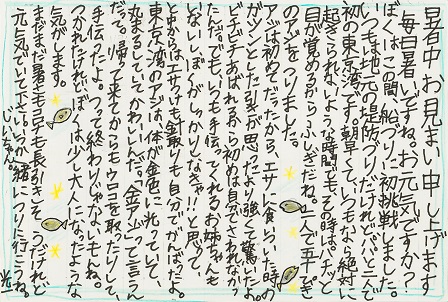 暑中お見まい申し上げます
毎日暑いですね。お元気ですか？
ぼくはこの間、船づりに初挑戦しました。
いつもは地元の堤防づりだけどパパと二人で
初の東京湾です。朝早くて、いつもなら絶対に
起きられないような時間でもその時はパッと
目が覚めるからふしぎだね。二人で五十ぴき
のアジをつりました。
アジは初めてだったから、エサに食いついた時の
ガツンとした引きが思ったより強くて驚いたよ。
ビチビチあばれるから初めは自分でさわれなかっ
たんだ。でもいつも手伝ってくれるお姉ちゃんも
いないし、ぼくがしっかりしなきゃ!!と思って、
と中からはエサつけも金取りも自分でがんばったよ。
東京湾のアジは体が金色に光っていて、
丸まるしていてかわいいんだ。金アジって言うん
だって。帰って来てからもウロコを取ったりして、
手伝ったよ。つって終わりじゃないもんね。
つかれたけれどぼくは少し大人になったような
気がします。
まだまだ暑さもコロナも長引きそうだけれど
元気でいてさい。いつか一緒につりに行こうね。
じいちゃんへ 光